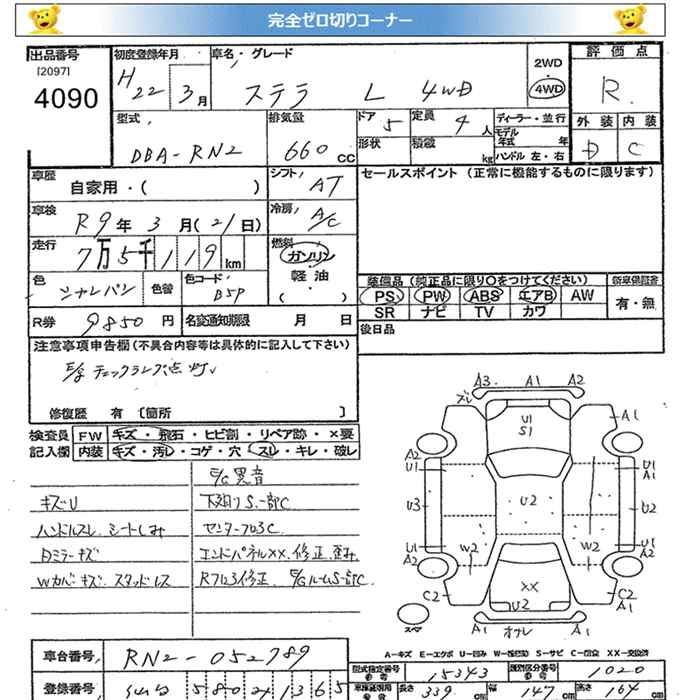 完全ゼロ切りコーナー
出品番号 初度登録年月 車名・グレード 2WD 評価点
[2097] H22年 3月 ステラ L 4WD 4WD R
4090
型式 排気量 ドア 5 定員 4人 ディーラー・並行 外装 内装
DBA-RN2 660cc 形状 積載 kg モデル年式 年 D C
ハンドル左・右
車歴 自家用・( ) シフト AT セールスポイント (正常に機能するものに限ります)
車検 R9年 3月(21日) 冷房 A/C
走行 7万5千119km 燃料 ガソリン
軽油
( )
色 色替 色コード B5P 装備品 (純正品に限り○をつけてください) 新車保証書
PS PW ABS エアB AW 有・無
SR ナビ TV カワ
R券 9850円 名変通知期限 月 日 後日品
注意事項申告欄(不具合内容等は具体的に記入して下さい)
E/gチェックランプ点灯
修復歴 有 [箇所 ]
検査員 FW キズ・飛石・ヒビ割・リペア跡・×要
記入欄 内装 キズ・汚レ・コゲ・穴・スレ・キレ・破レ
E/G異音
キズU 下廻りS一部C
ハンドルスレ シートしみ センターフロアC
Dミラーキズ エンドパネルXX.修正.歪み
Wカバーキズ スタッドレス Rフロア修正 E/GルームS一部C
A3 A1 A2
ズレ A1
U1
S1
A2 U1
U1 A1
U3 U2 U2
U1 W2 W2 U1
A2 A1
C2 XX C2
U2 A1
スペア A1 オサレ A1
A-キズ E-エクボ U-凹み W-補修跡 S-サビ C-腐食 XX-交換済
車台番号 RN2-052789
型式指定番号 15343 類別区分番号 1020
登録番号 580 1365
車検証明用参考 長さ 339cm 幅 147cm 高さ 164cm